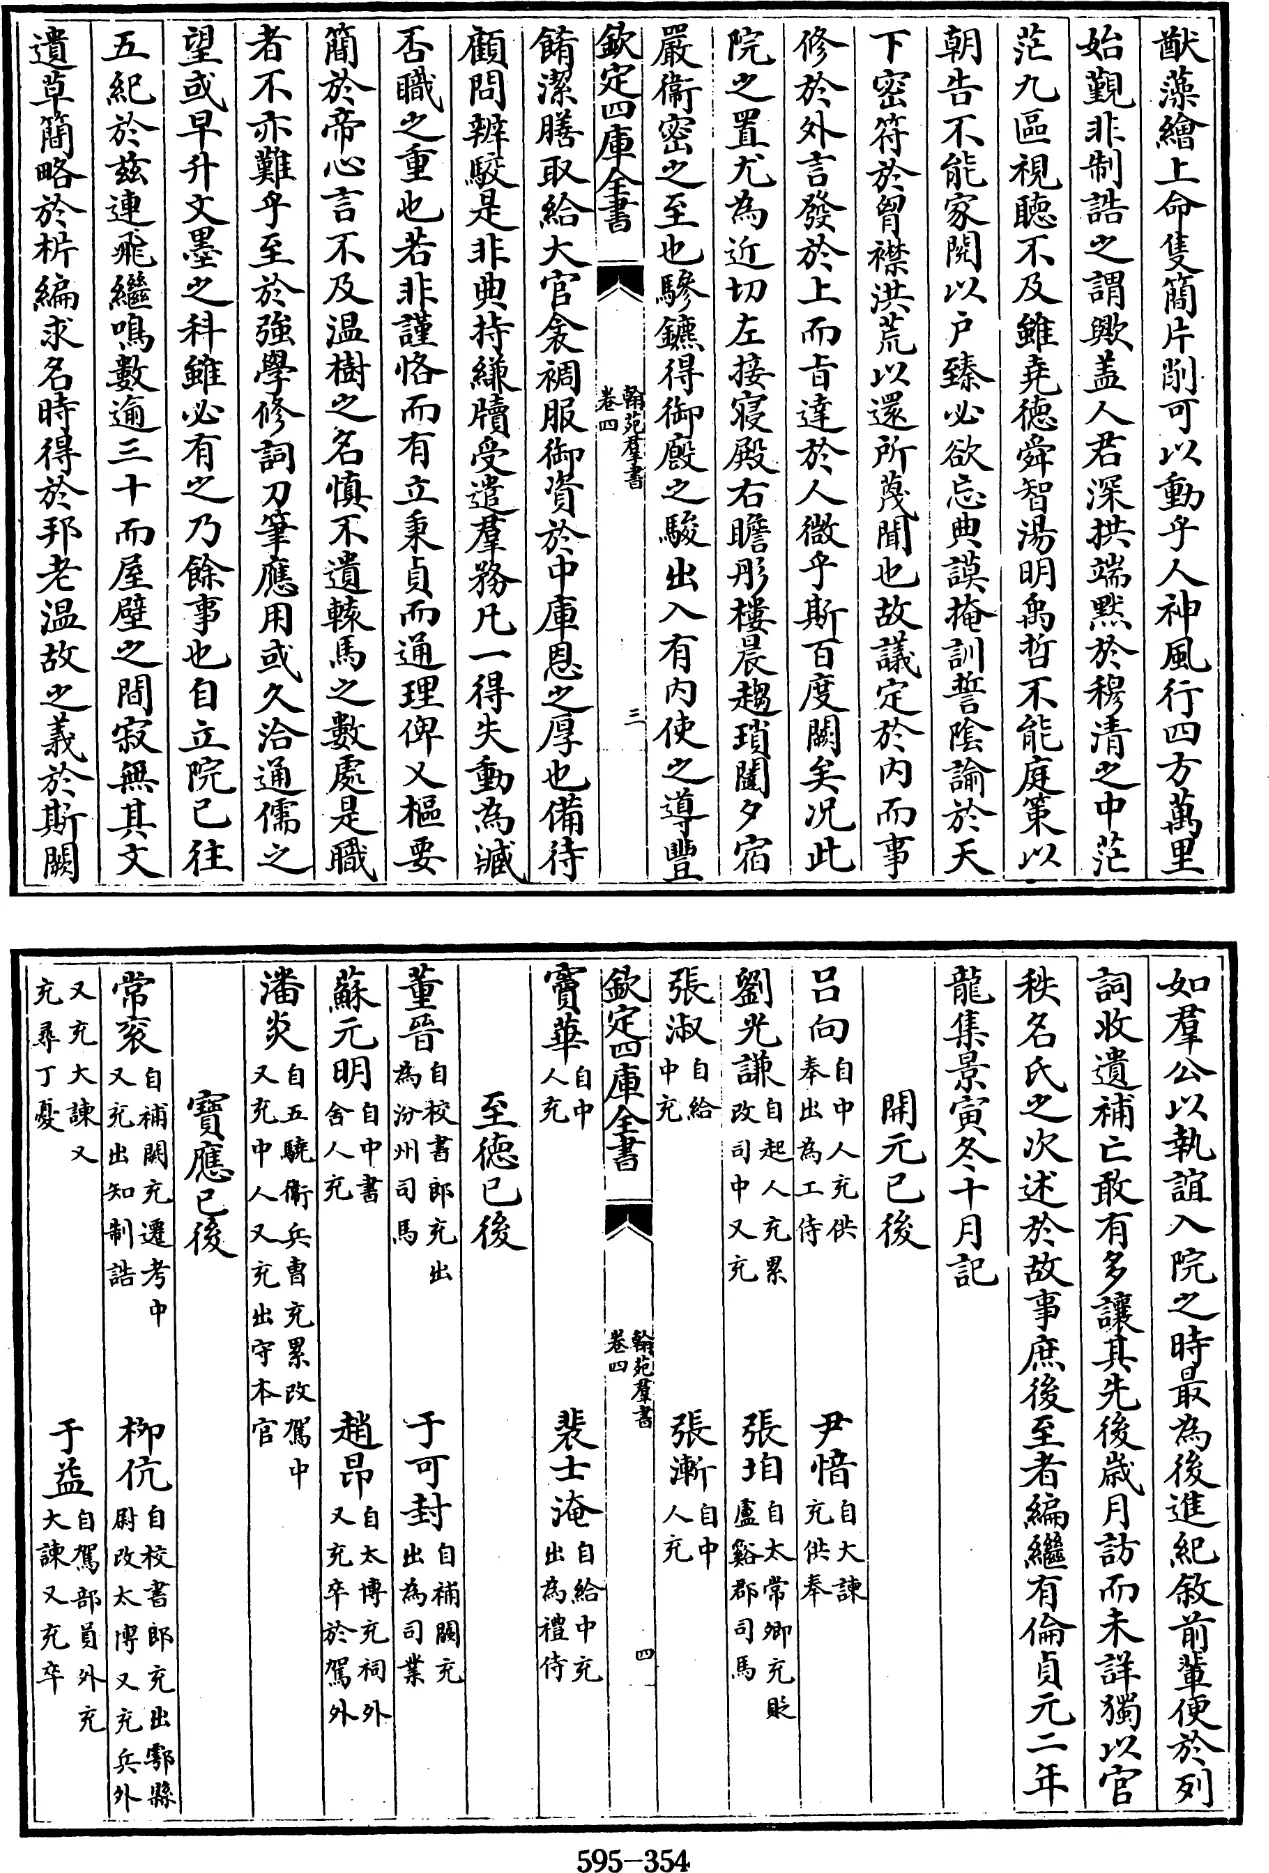 猷藻繪上命隻簡片削可以動乎人神風行四方萬里
始覿非制誥之謂歟盖人君深拱端黙於穆清之中茫
茫九區視聽不及雖堯德舜智湯明禹哲不能庭策以
朝告不能家閱以户臻必欲忘典謨掩訓誓陰諭於天
下密符於胷襟洪荒以還所蔑聞也故議定於内而事
修於外言發於上而㫖達於人微乎斯百度闕矣况此
院之置尤為近切左接寢殿右瞻彤樓晨趨瑣闥夕宿
嚴衞密之至也驂鑣得御廐之駿出入有内使之導豐
欽定四庫全書
翰苑羣書
卷四
三
餚潔膳取給大官衾裯服御資於中庫恩之厚也備待
顧問辨駁是非典持縑牘受遣羣務凡一得失動為臧
否職之重也若非謹恪而有立秉貞而通理俾乂樞要
簡於帝心言不及温樹之名慎不遺轅馬之數處是職
者不亦難乎至於強學修詞刀筆應用或久洽通儒之
望或早升文墨之科雖必有之乃餘事也自立院已往
五紀於兹連飛繼鳴數逾三十而屋壁之間寂無其文
遺草簡略於枿編求名時得於邦老温故之義於斯闕
如羣公以執誼入院之時最為後進紀敘前輩便於列
詞收遺補亡敢有多讓其先後歲月訪而未詳獨以官
秩名氏之次述於故事庶後至者編繼有倫貞元二年
龍集景寅冬十月記
開元已後
吕向自中人充供
奉出為工侍
尹愔自大諫
充供奉
劉光謙自起人充累
改司中又充
張垍自太常卿充貶
盧谿郡司馬
張淑自給
中充
張漸自中
人充
欽定四庫全書
翰苑羣書
卷四
四
竇華自中
人充
裴士淹自給中充
出為禮侍
至德已後
董晉自校書郎充出
為汾州司馬
于可封自補闕充
出為司業
蘇元明自中書
舍人充
趙昂自太博充祠外
又充卒於駕外
潘炎自五驍衞兵曹充累改駕中
又充中人又充出守本官
寶應已後
常袞自補闕充遷考中
又充出知制誥
柳伉自校書郎充出鄠縣
尉改太博又充兵外
又充大諫又
充尋丁憂
于益自駕部員外充
大諫又充卒
595-354